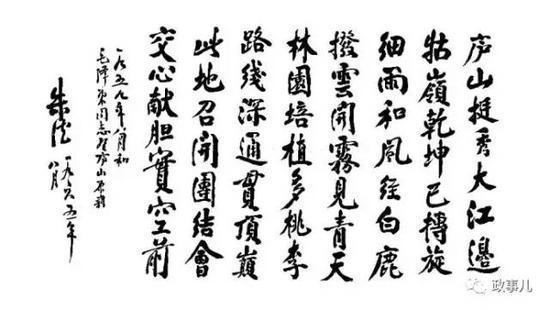 庐山挺秀大江邊
牯嶺乾坤已轉旋
细雨和風經白鹿
撥雲開霧見青天
林園培植多桃李
路线深通貫頂巔
此地召開團結會
交心献胆實空前
一九五九年八月和
毛澤东同志登庐山原韵
朱德 一九六五年
八月
政事儿